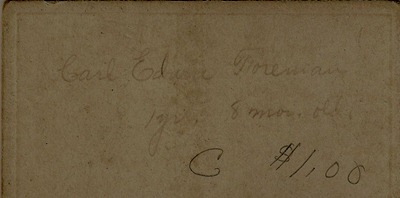 Carl Edwin Foreman
1 yr. 8 mos. old.
C $1,00